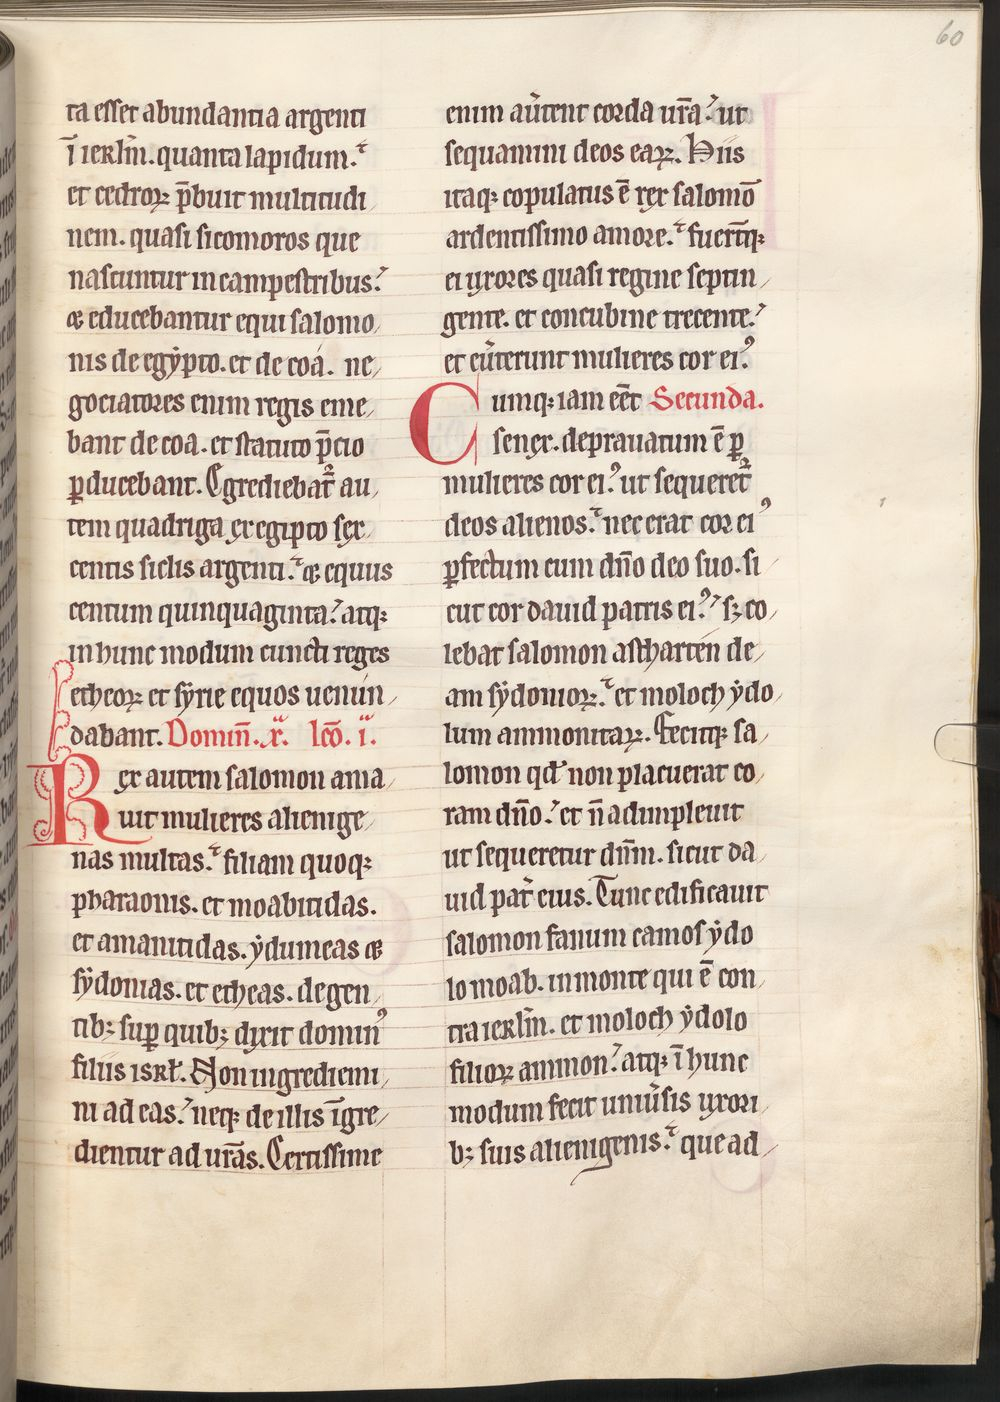 60
ta esset abundantia argenti
ī ierlm̄. quanta lapidum.
et cedroꝝ p̄buit multitudi
nem. quasi sicomoros que
nascuntur in campestribus?
& educebantur equi salomo
nis de egẏpto. et de coá. ne
gociatores enim regis eme
bant de coa. et statuto p̄cio
ꝑducebant. Egrediebat᷑ au
tem quadriga ex egipto sex
centis siclis argenti. & equus
centum quinquaginta? atqꝫ
in hunc modum cuncti reges
etheoꝝ et syrie equos uenun
dabant. Domiñ. x. lc̄o. i.
Rex autem salomon ama
uit mulieres alienige
nas multas. filiam quoqꝫ
pharaonis. et moabitidas.
et amanitidas. ẏdumeas &
sẏdonias. et etheas. de gen
tibꝫ suꝑ quibꝫ dixit dominꝰ
filiis isrł. Non ingrediemi
ni ad eas? neqꝫ de illis īgre
dientur ad ur̄as. Certissime
enim aūtent corda ur̄a? ut
sequamini deos eaꝝ. Hiis
itaqꝫ copulatus ē rex salomō
ardentissimo amore. fuer̄tqꝫ
ei uxores quasi regine septin
gente. et concubine trecente?
et eūterunt mulieres cor eiꝰ.
Cumqꝫ iam eēt Secunda.
senex. deprauatum ē ꝑ
mulieres cor eiꝰ. ut sequeret᷑
deos alienos. nec erat cor eiꝰ
ꝑfectum cum dn̄o deo suo. si
cut cor dauid patris eiꝰ? sꝫ co
lebat salomon astharten de
am sẏdonioꝝ. et moloch ẏdo
lum ammonitaꝝ. Fecitqꝫ sa
lomon qđ non placuerat co
ram dn̄o? et n̄ adimpleuit
ut sequeretur dn̄m. sicut da
uid pat᷑ eius. Tunc edificauit
salomon fanum camos ẏdo
lo moab. in monte qui ē con
tra ierlm̄. et moloch ẏdolo
filioꝝ ammon? atqꝫ ī hunc
modum fecit uniūsis uxori
bꝫ suis alienigenis. que ad